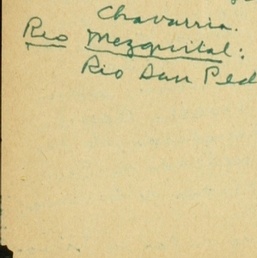 Chavarria.
Rio Mezquital:
Rio San Ped